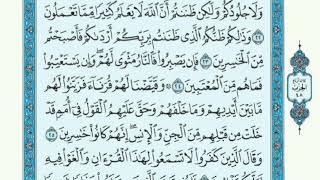 وَلَا جُلُودُكُمْ وَلَٰكِن ظَنَنتُمْ أَنَّ ٱللَّهَ لَا يَعْلَمُ كَثِيرًا مِّمَّا تَعْمَلُونَ
٢٢ وَذَٰلِكُمْ ظَنُّكُمُ ٱلَّذِى ظَنَنتُم بِرَبِّكُمْ أَرْدَىٰكُمْ فَأَصْبَحْتُم
مِّنَ ٱلْخَٰسِرِينَ ٢٣ فَإِن يَصْبِرُوا۟ فَٱلنَّارُ مَثْوًى لَّهُمْ وَإِن يَسْتَعْتِبُوا۟
فَمَا هُم مِّنَ ٱلْمُعْتَبِينَ ٢٤ وَقَيَّضْنَا لَهُمْ قُرَنَآءَ فَزَيَّنُوا۟ لَهُم
مَّا بَيْنَ أَيْدِيهِمْ وَمَا خَلْفَهُمْ وَحَقَّ عَلَيْهِمُ ٱلْقَوْلُ فِىٓ أُمَمٍ قَدْ
خَلَتْ مِن قَبْلِهِم مِّنَ ٱلْجِنِّ وَٱلْإِنسِ إِنَّهُمْ كَانُوا۟ خَٰسِرِينَ ٢٥
وَقَالَ ٱلَّذِينَ كَفَرُوا۟ لَا تَسْمَعُوا۟ لِهَٰذَا ٱلْقُرْءَانِ وَٱلْغَوْا۟ فِيهِ
الحزب
٤٨